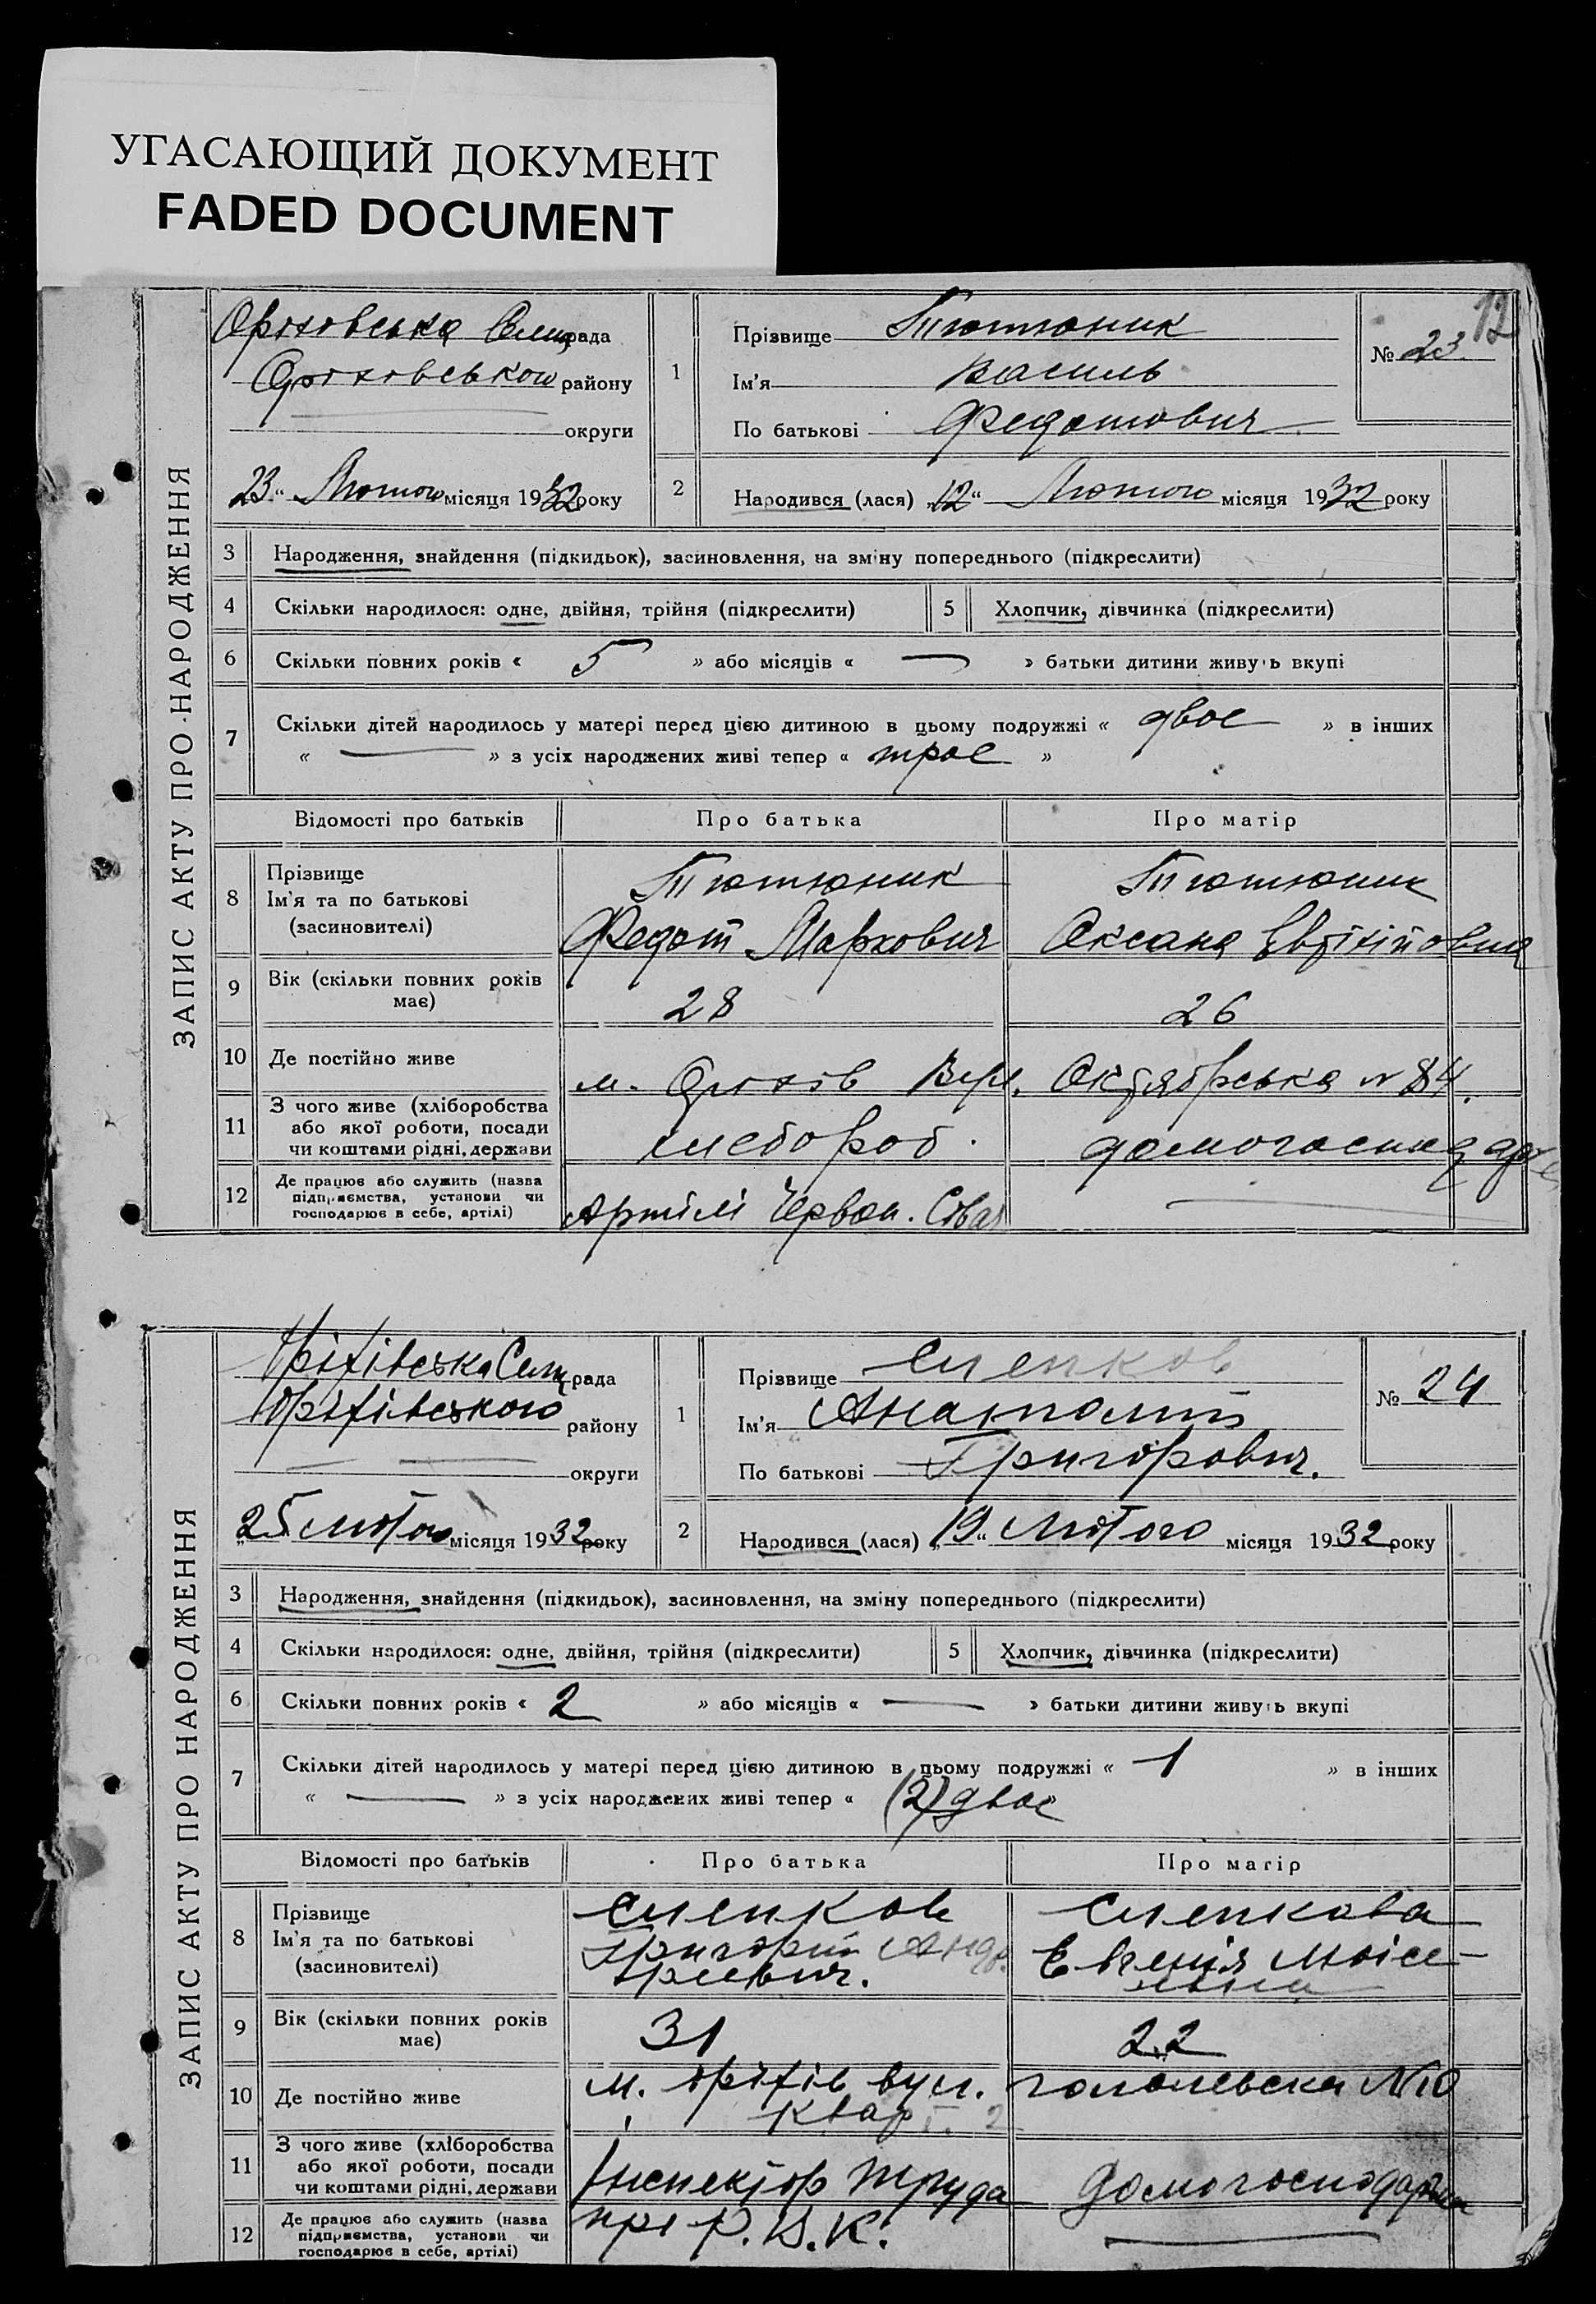 УГАСАЮЩИЙ ДОКУМЕНТ
FADED DOCUMENT
12
ЗАПИС АКТУ ПРО НАРОДЖЕННЯ
Оріховська Селищрада
Оріховського району
округи
23 „ Лютого місяця 1932 року
1
Прізвище Тютюник
Ім'я Василь
По батькові Федотович
№ 23
2 Народився (лася) „12“ Лютого місяця 1932 року
3 Народження, знайдення (підкидьок), засиновлення, на зміну попереднього (підкреслити)
4 Скільки народилося: одне, двійня, трійня (підкреслити) 5 Хлопчик, дівчинка (підкреслити)
6 Скільки повних років « 5 » або місяців « — » батьки дитини живуть вкупі
7 Скільки дітей народилось у матері перед цією дитиною в цьому подружжі « двоє » в інших
« — » з усіх народжених живі тепер « троє »
Відомості про батьків Про батька Про матір
8 Прізвище Тютюник Тютюник
Ім'я та по батькові
(засиновителі) Федот Маркович Оксана
9 Вік (скільки повних років має) 28 26
10 Де постійно живе м. Оріхів Октябрська № 84.
11 З чого живе (хліборобства
або якої роботи, посади
чи коштами рідні, держави хлебороб.
12 Де працює або служить (назва
підприємства, установи чи
господарює в себе, артілі) Артілі Червон.
ЗАПИС АКТУ ПРО НАРОДЖЕННЯ
Оріхівська Селищрада
Оріхівського району
округи
„25 лютого місяця 1932 року
1
Прізвище Слепков
Ім'я Анатолій
По батькові Григорович.
№ 24
2 Народився (лася) „19“ Лютого місяця 1932 року
3 Народження, знайдення (підкидьок), засиновлення, на зміну попереднього (підкреслити)
4 Скільки народилося: одне, двійня, трійня (підкреслити) 5 Хлопчик, дівчинка (підкреслити)
6 Скільки повних років « 2 » або місяців « — » батьки дитини живуть вкупі
7 Скільки дітей народилось у матері перед цією дитиною в цьому подружжі « 1 » в інших
« — » з усіх народжених живі тепер « (2) двоє
Відомості про батьків Про батька Про матір
8 Прізвище Слепков Слепкова
Ім'я та по батькові Григорій Анд- Евгенія Моісе-
(засиновителі) рієвич. евна
9 Вік (скільки повних років має) 31 22
10 Де постійно живе м. Оріхів вул. Гоголевська №10
кварт. 2
11 З чого живе (хліборобства
або якої роботи, посади
чи коштами рідні, держави Інспектор труда домогосподарка
12 Де працює або служить (назва при Р.В.К.
підприємства, установи чи
господарює в себе, артілі)